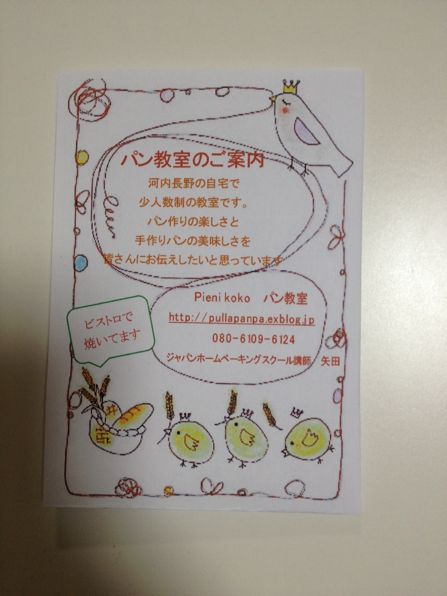 パン教室のご案内
河内長野の自宅で
少人数制の教室です。
パン作りの楽しさと
手作りパンの美味しさを
皆さんにお伝えしたいと思っています
Pieni koko　パン教室
http://pullapanpa.exblog.jp
080-6109-6124
ジャパンホームベーキングスクール講師　矢田
ビストロで
焼いてます